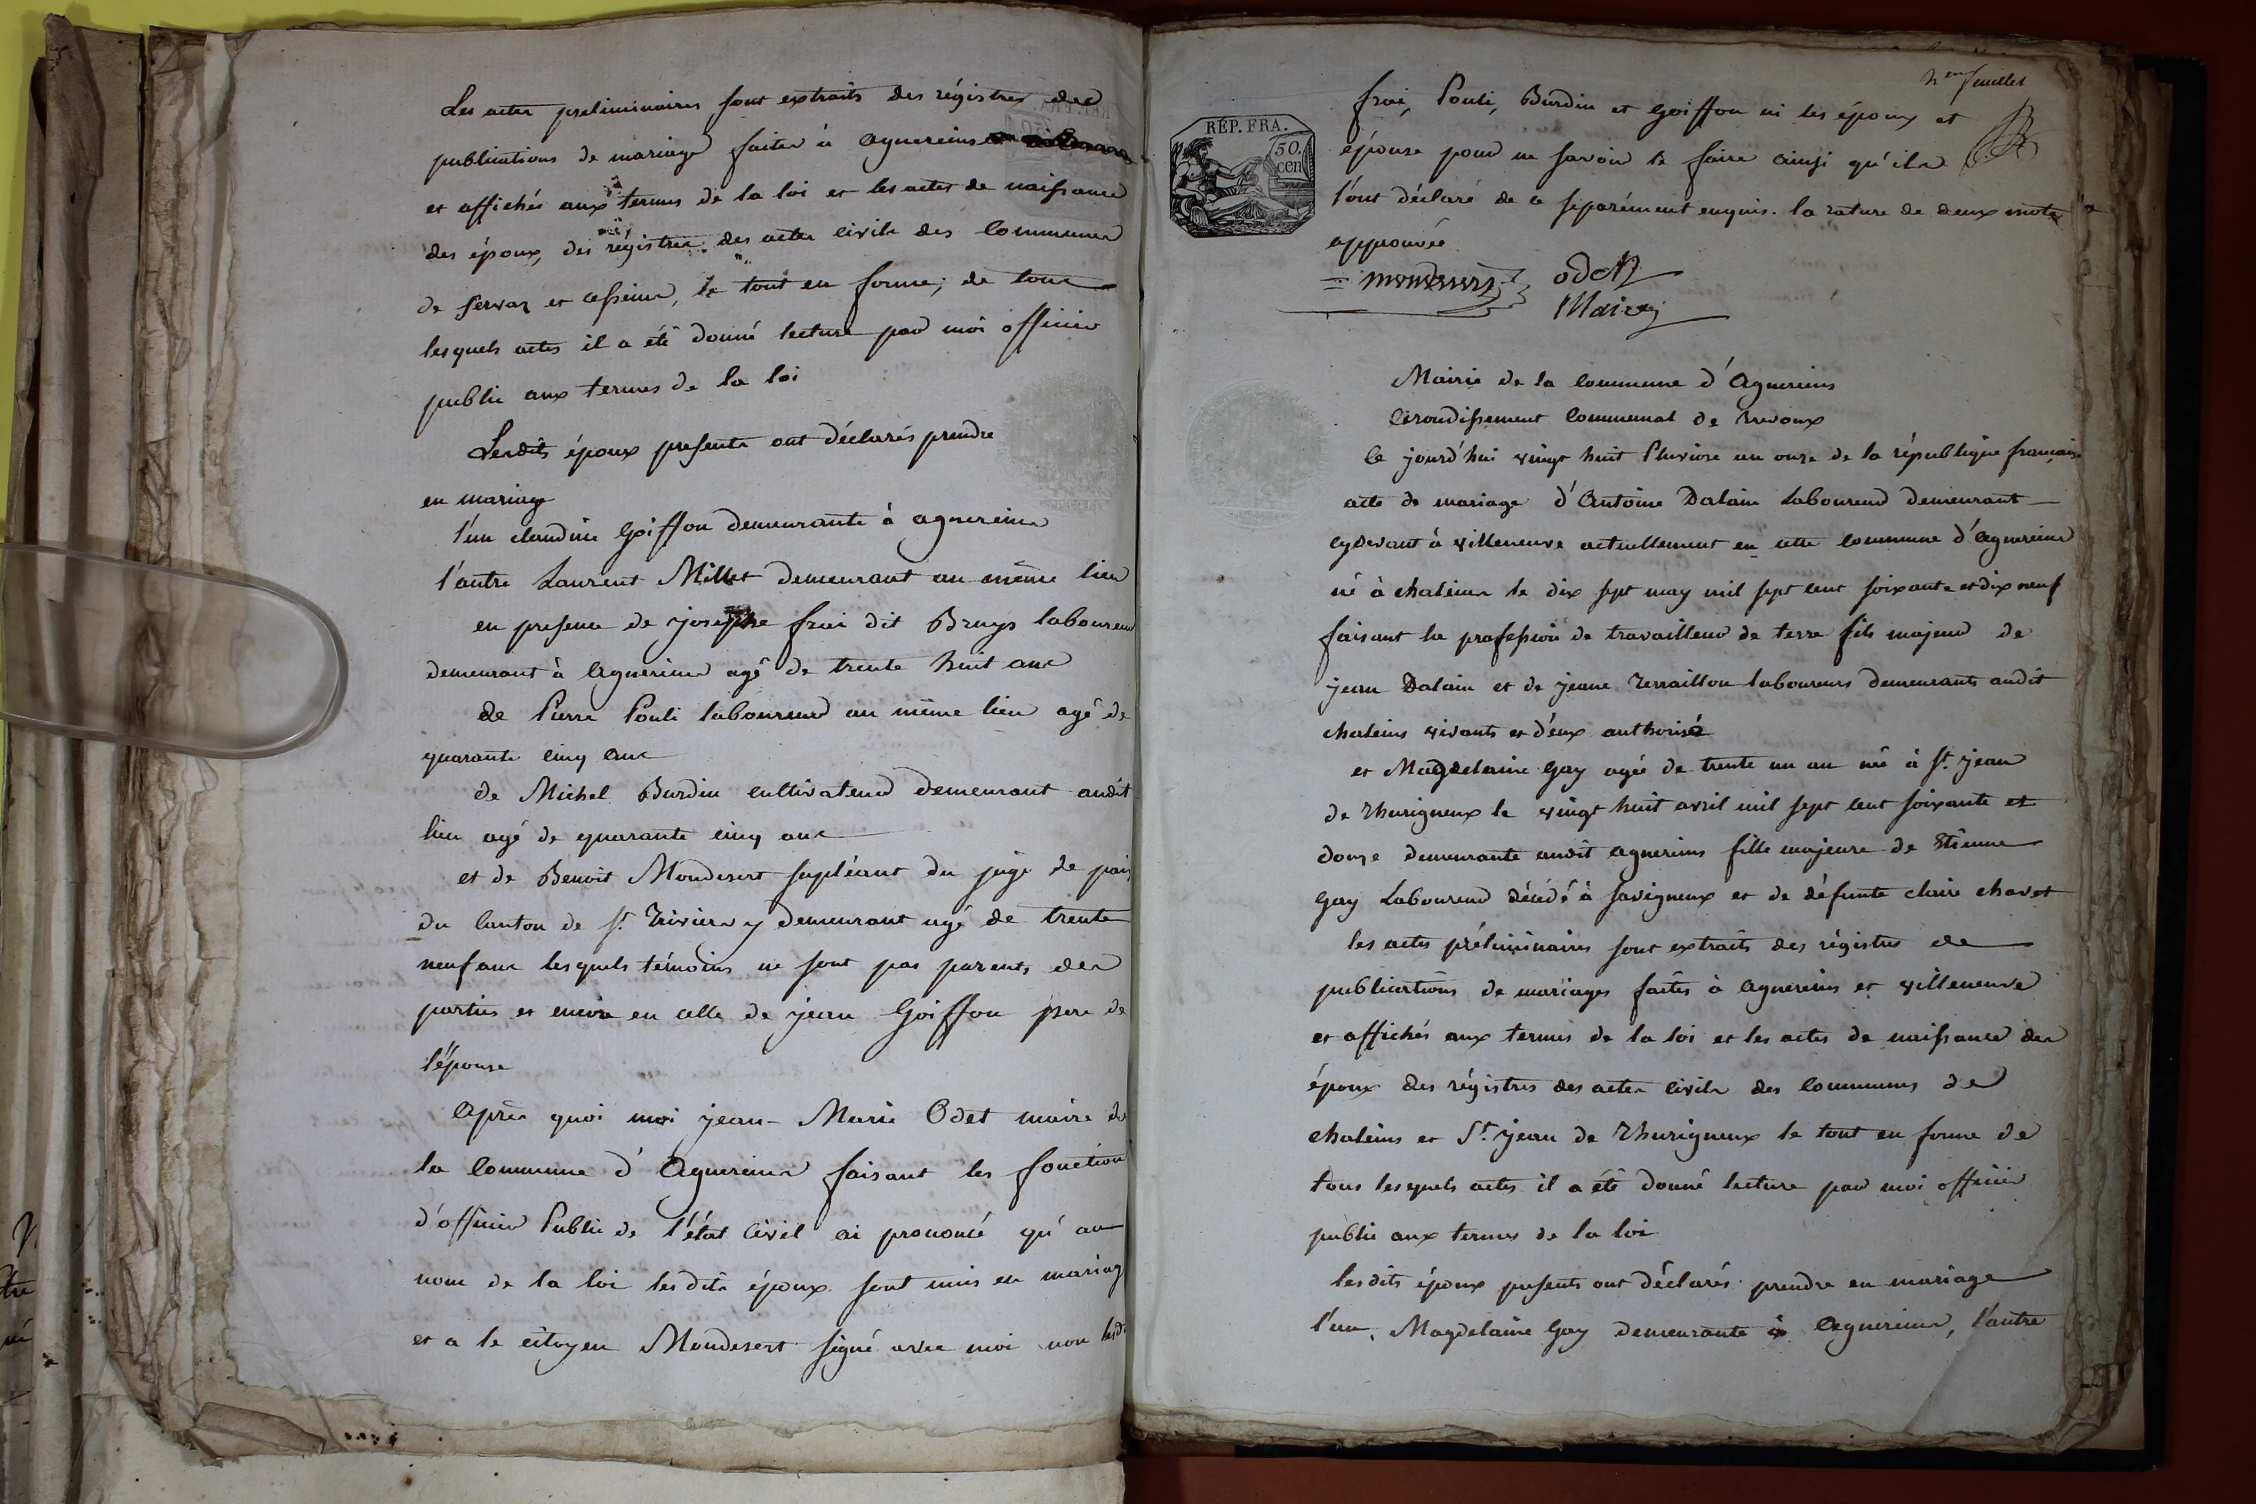 Les actes preliminaires sont extraits des régistres des
publications de mariage faites à agnereins
et affichés aux termes de la loi et les actes de naissance
des époux, des régistres des actes civils des communes
de servaz et ass, le tout en forme; de tous
lesquels actes il a été donné lecture par moi officier
public aux termes de la loi
Lesdits époux presents ont déclarés prendre
en mariage
l'un claudine Goiffon demeurante à agnereins
l'autre Laurent Millet demeurant au même lieu
en presence de josephe frai dit Bruys laboureur
demeurant à agnereins agé de trente huit ans
de Pierre Pouli laboureur au même lieu agé de
quarante cinq ans
de Michel Burdin cultivateur demeurant audit
lieu agé de quarante cinq ans
et de Benoit Mondesert supléant du juge de paix
du canton de St. Triviers y demeurant agé de trente
neuf ans lesquels témoins ne sont pas parents des
parties et encore en celle de jean Goiffon pere de
l'épouse
après quoi moi jean-Marie Odet maire de
la commune d'agnereins faisant les fonction
d'officier Public de l'état civil ai prononcé qu'au
nom de la loi lesdits époux sont unis en mariage
et a le citoyen Mondesert signé avec moi non lesdt
feuillet
frai, Pouli, Burdin et Goiffon ni les époux et
RÉP. FRA.
50. cen
épouse pour ne savoir le faire ainsi qu'ils
l'ont déclaré de ce séparément enquis. la rature de deux mots
approuvée
mondesert odet
Maire
Mairie de la commune d'agnereins
arondissement communal de trevoux
Ce jourd'hui vingt huit Pluviose an onze de la république française
acte de mariage d'antoine Dalain Laboureur demeurant
cydevant à villeneuve actuellement en cette commune d'agnereins
né à chaleins le dix sept may mil sept cent soixante et dix neuf
faisant la profession de travailleur de terre fils majeur de
jean Dalain et de jeane Terraillon laboureurs demeurants audit
chaleins vivants et d'eux authorisé
et Magdelaine Gay agée de trente un an né à St. jean
de Thurigneux le vingt huit avril mil sept cent soixante et
douze demeurante audit agnereins fille majeure de Etienne
Gay Laboureur décédé à savigneux et de défunte claire chavet
les actes préliminaires sont extraits des régistres de
publications de mariages faites à agnereins et villeneuve
et affichés aux termes de la loi et les actes de naissance des
époux des régistres des actes civils des communes de
chaleins et St. jean de Thurigneux le tout en forme de
tous lesquels actes il a été donné lecture par moi officier
public aux termes de la loi
lesdits époux presents ont déclarés prendre en mariage
l'un, Magdelaine Gay demeurante à agnereins, l'autre